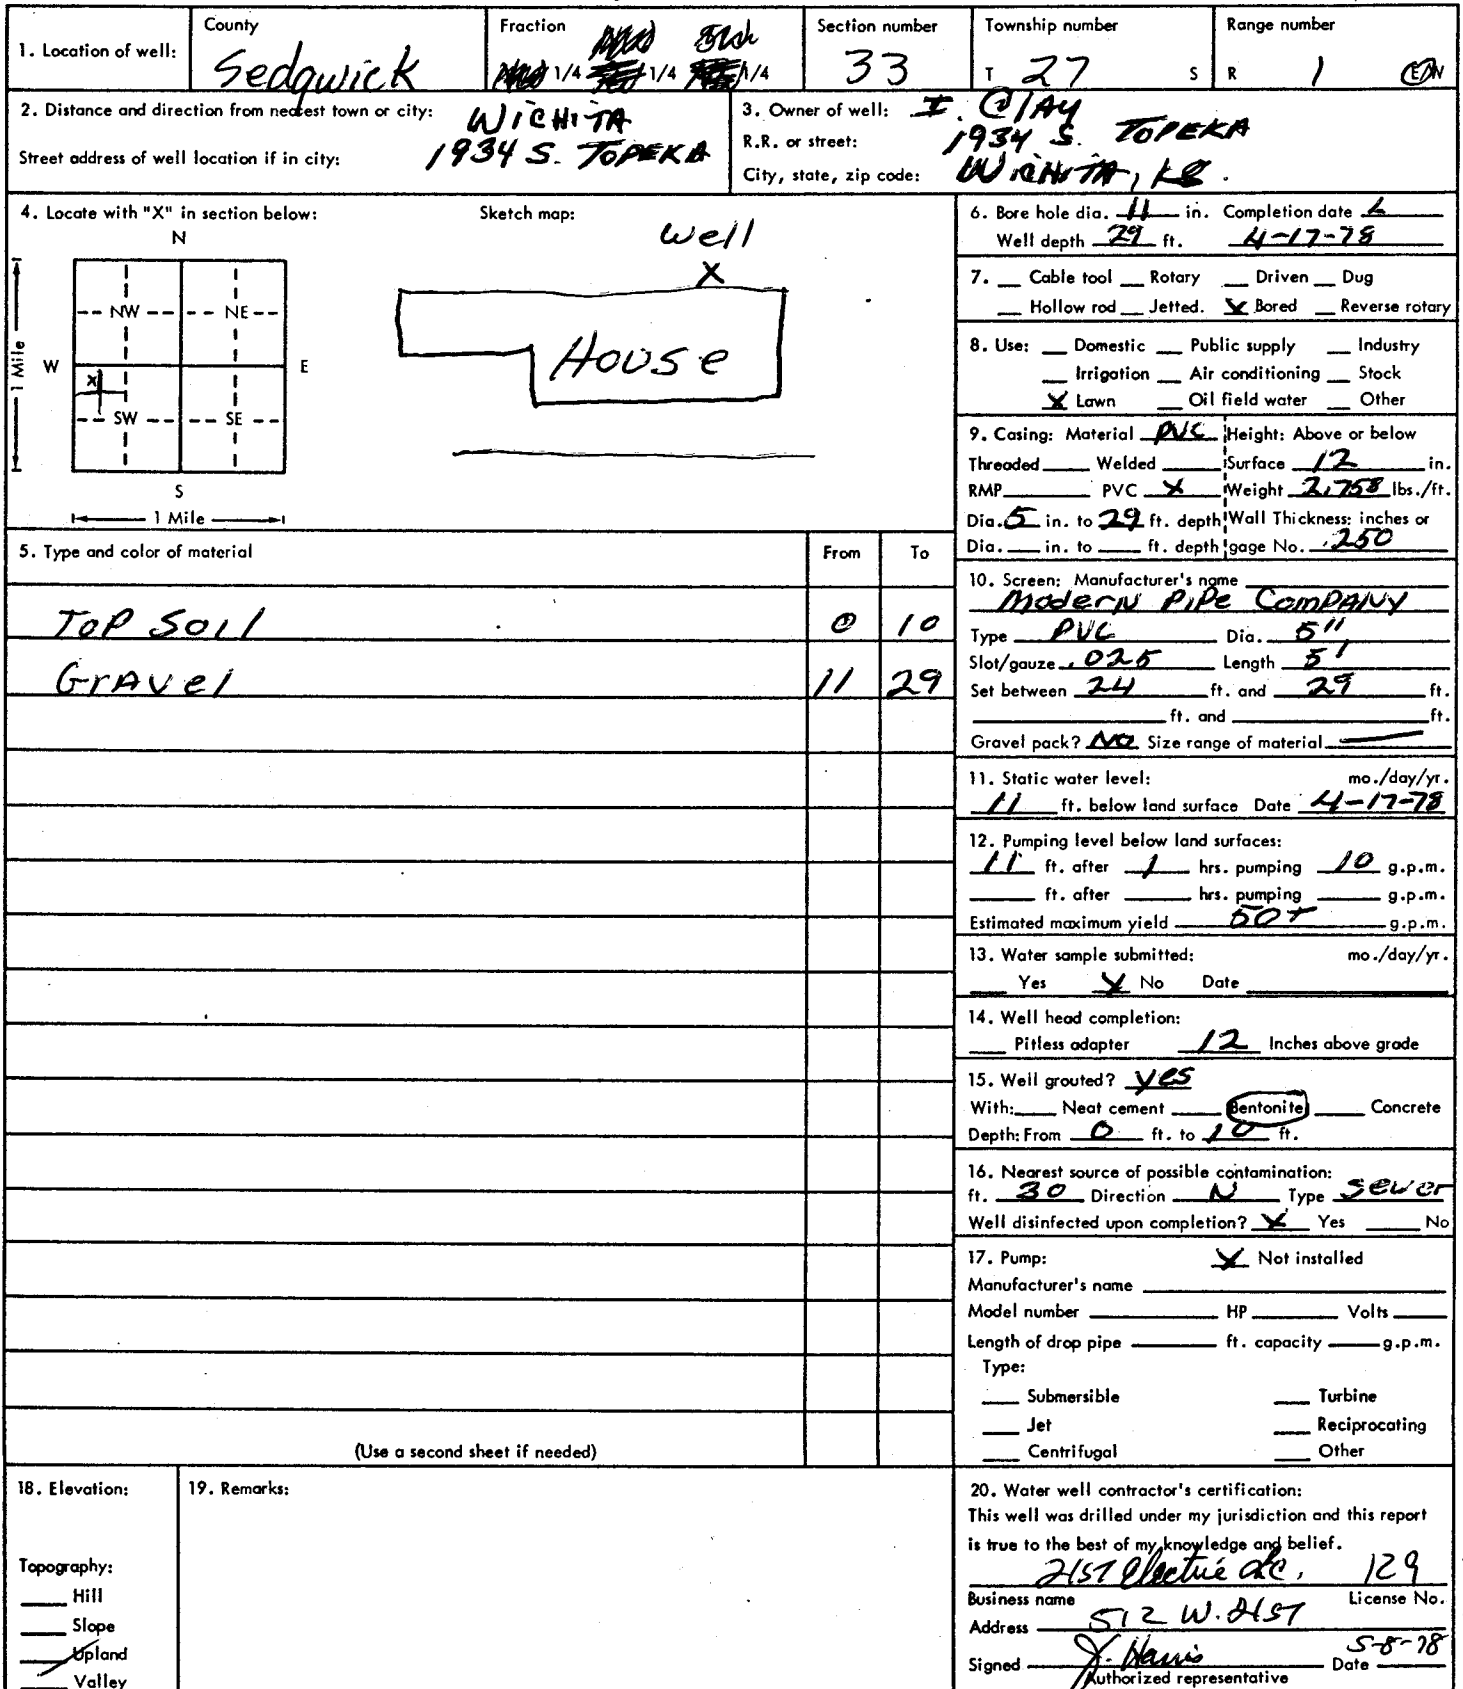 1. Location of well:
County
Sedgwick
Fraction
1/4 1/4 1/4
Section number
33
Township number
T 27 S
Range number
R 1 E/W
2. Distance and direction from nearest town or city: WICHITA
Street address of well location if in city: 1934 S. TOPEKA
3. Owner of well: I. Clay
R.R. or street: 1934 S. TOPEKA
City, state, zip code: WICHITA, KS.
4. Locate with "X" in section below:
N
NW NE
W E
X
SW SE
S
1 Mile
1 Mile
Sketch map:
Well
X
House
5. Type and color of material From To
TOP SOIL 0 10
GRAVEL 11 29
(Use a second sheet if needed)
6. Bore hole dia. 11 in. Completion date
Well depth 29 ft. 4-17-78
7. Cable tool Rotary Driven Dug
Hollow rod Jetted. X Bored Reverse rotary
8. Use: Domestic Public supply Industry
Irrigation Air conditioning Stock
X Lawn Oil field water Other
9. Casing: Material PVC Height: Above or below
Threaded Welded Surface 12 in.
RMP PVC X Weight 2.758 lbs./ft.
Dia. 5 in. to 29 ft. depth Wall Thickness: inches or
Dia. in. to ft. depth gage No. .250
10. Screen: Manufacturer's name
Modern Pipe Company
Type PVC Dia. 5"
Slot/gauze .025 Length 5'
Set between 24 ft. and 29 ft.
ft. and ft.
Gravel pack? NO Size range of material
11. Static water level: mo./day/yr.
11 ft. below land surface Date 4-17-78
12. Pumping level below land surfaces:
11 ft. after 1 hrs. pumping 10 g.p.m.
ft. after hrs. pumping g.p.m.
Estimated maximum yield 50+ g.p.m.
13. Water sample submitted: mo./day/yr.
Yes X No Date
14. Well head completion:
Pitless adapter 12 Inches above grade
15. Well grouted? yes
With: Neat cement Bentonite Concrete
Depth: From 0 ft. to 10 ft.
16. Nearest source of possible contamination:
ft. 30 Direction N Type sewer
Well disinfected upon completion? X Yes No
17. Pump: X Not installed
Manufacturer's name
Model number HP Volts
Length of drop pipe ft. capacity g.p.m.
Type:
Submersible Turbine
Jet Reciprocating
Centrifugal Other
18. Elevation:
Topography:
Hill
Slope
Upland
Valley
19. Remarks:
20. Water well contractor's certification:
This well was drilled under my jurisdiction and this report
is true to the best of my knowledge and belief.
21st Electric 129
Business name License No.
Address 512 W. 21st
Signed J. Harris Date 5-8-78
Authorized representative